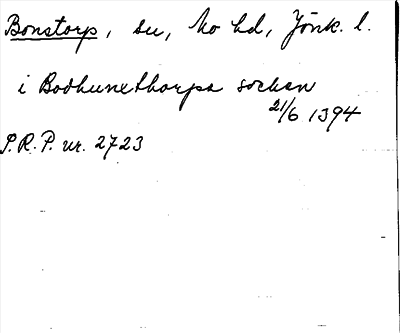 Bonstorp, su, Mo hd, Jönk. l.
i Bodhunethorpa sockan
21/6 1394
S.R.P. nr. 2723